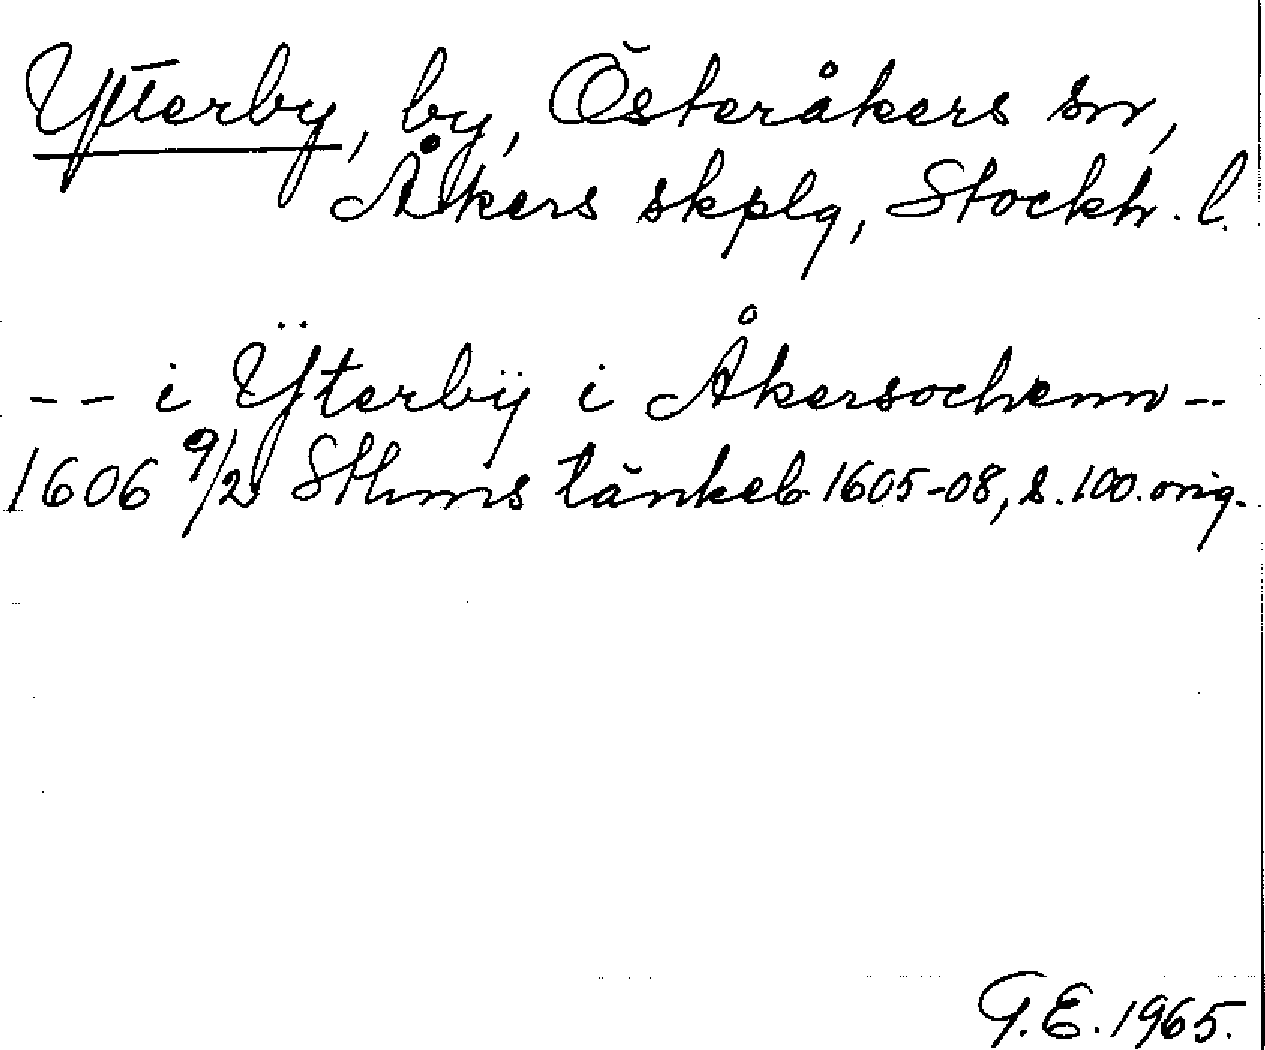 Ytterby, by, Österåkers sn,
Åkers skplg, Stockh. l.
-- i Ÿterbÿ i Åkersochenn --
1606 9/2 Sthms tänkeb 1605-08, s. 100. orig.
G.E. 1965.